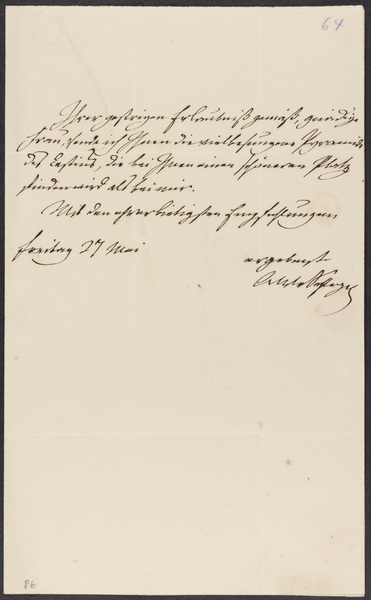 64
Ihrer gestrigen Erlaubniß gemäß, gnädige
Frau, sende ich Ihnen die vielbesungene Pyramide
des Cestius, die bei Ihnen einen schöneren Platz
finden wird als bei mir.
Mit den ehrerbietigsten Empfehlungen
Freitag 27 Mai
ergebenst
86